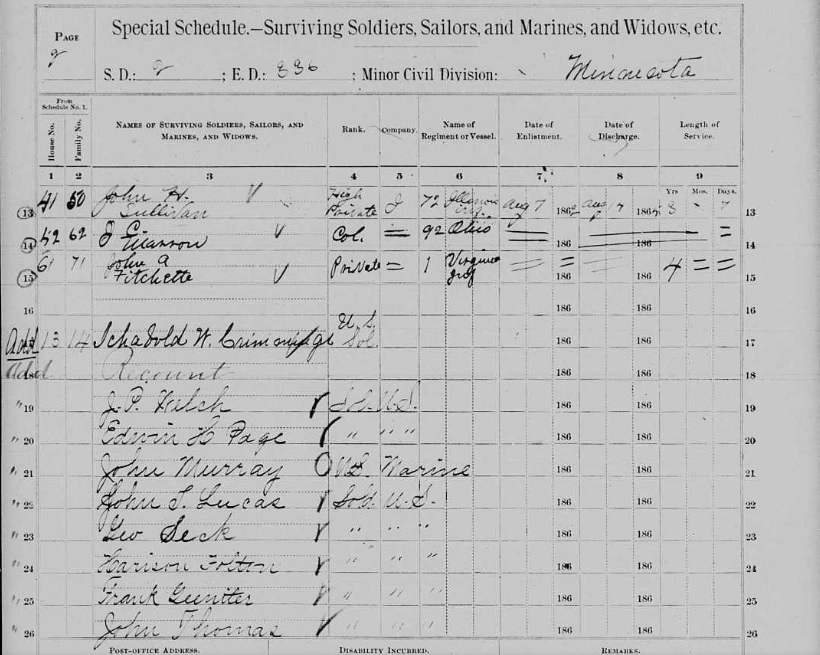 PAGE
2
Special Schedule.—Surviving Soldiers, Sailors, and Marines, and Widows, etc.
S. D.: 2 ; E. D.: 836 ; Minor Civil Division: Minnesota
From Schedule No. 1.
House No. Family No. NAMES OF SURVIVING SOLDIERS, SAILORS, AND MARINES, AND WIDOWS. Rank. Company. Name of Regiment or Vessel. Date of Enlistment. Date of Discharge. Length of Service.
1 2 3 4 5 6 7 8 9
Yrs Mos. Days.
13 41 50 John H. Sullivan High Private J 72 Illinois Aug 7 1862 Aug 7 186 3 - 7 13
14 52 62 J C Marrow Col. = 92 Ohio 186 186 = 14
15 61 71 John A Fitchette Private = 1 Virginia = = 186 = 186 4 = = 15
16 186 186 16
Add 13 14 Schadold W. U.S. Sol. 186 186 17
Add 18 Recount 186 186 18
" 19 J. P. Welch Sol. U.S. 186 186 19
" 20 Edwin H Page " " " 186 186 20
" 21 John Murray U.S. Marine 186 186 21
" 22 John T. Lucas Sold. U.S. 186 186 22
" 23 Geo Seck " " " 186 186 23
" 24 Harison Folton " " " 186 186 24
" 25 Frank Guntter " " " 186 186 25
" 26 John Thomas " " " 186 186 26
POST-OFFICE ADDRESS. DISABILITY INCURRED. REMARKS.